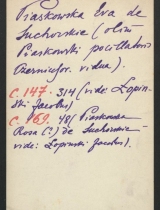 Piaskowska Eva de
Suchorskie (olim
Piaskowski pocillatoris
Czernichov. vidua).
C. 147. 314 (vide: Łopiń-
ski Jacobus)
C. 169. 48 (Piaskowska
Rosa (?) de Suchorskie -
vide: Łopiński Jacobus).